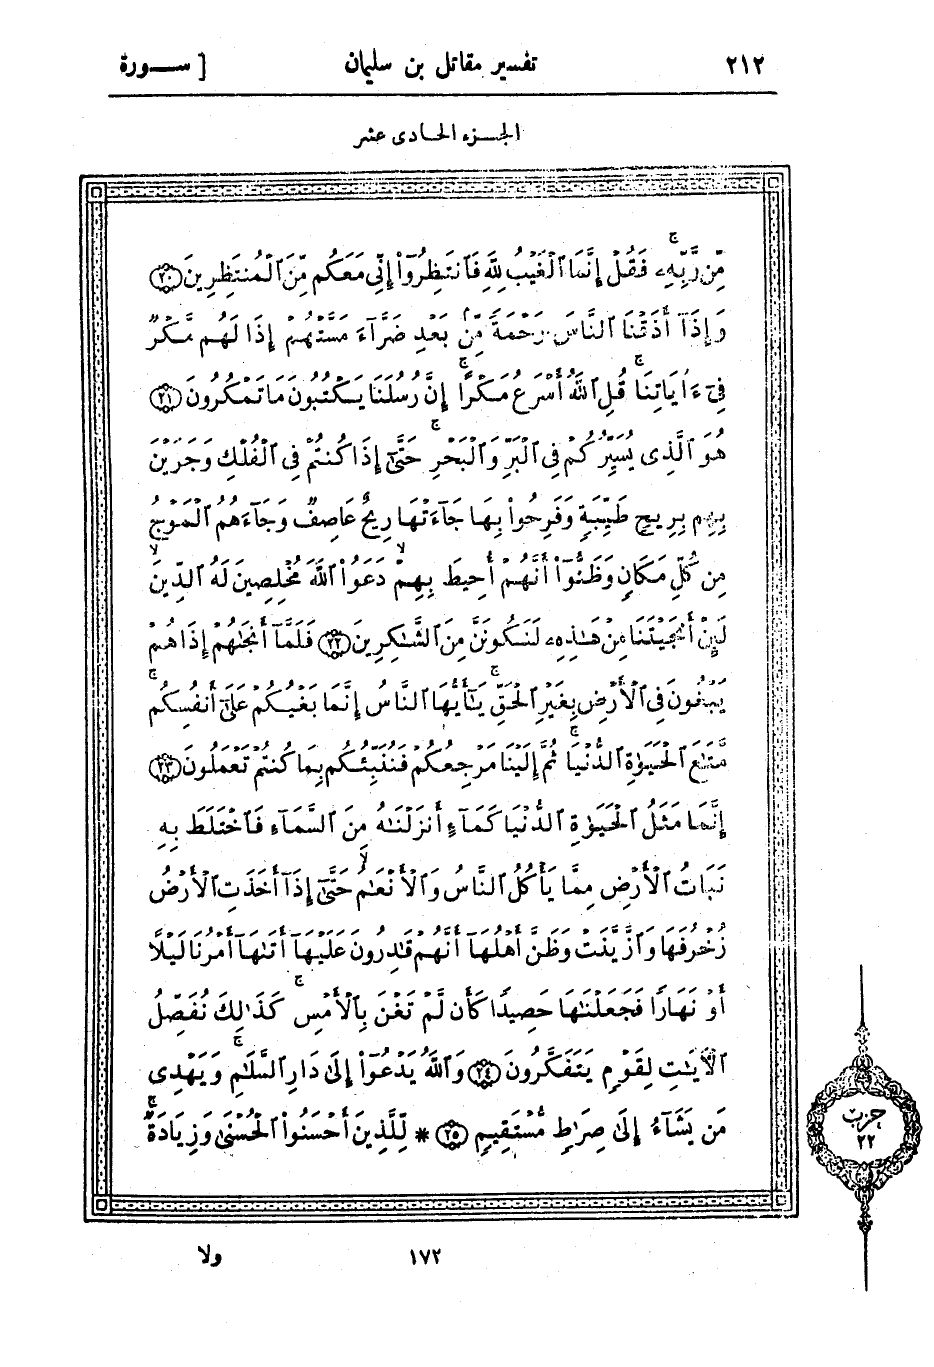 ٢١٢ تفسير مقاتل بن سليمان [ ســـورة
الجـزء الحـادى عشر
مِّن رَّبِّهِۦ فَقُلْ إِنَّمَا ٱلْغَيْبُ لِلَّهِ فَٱنتَظِرُوٓا۟ إِنِّى مَعَكُم مِّنَ ٱلْمُنتَظِرِينَ ۝٢٠
وَإِذَآ أَذَقْنَا ٱلنَّاسَ رَحْمَةً مِّنۢ بَعْدِ ضَرَّآءَ مَسَّتْهُمْ إِذَا لَهُم مَّكْرٌ
فِىٓ ءَايَاتِنَا ۚ قُلِ ٱللَّهُ أَسْرَعُ مَكْرًا ۚ إِنَّ رُسُلَنَا يَكْتُبُونَ مَا تَمْكُرُونَ ۝٢١
هُوَ ٱلَّذِى يُسَيِّرُكُمْ فِى ٱلْبَرِّ وَٱلْبَحْرِ ۚ حَتَّىٰٓ إِذَا كُنتُمْ فِى ٱلْفُلْكِ وَجَرَيْنَ
بِهِم بِرِيحٍ طَيِّبَةٍ وَفَرِحُوا۟ بِهَا جَآءَتْهَا رِيحٌ عَاصِفٌ وَجَآءَهُمُ ٱلْمَوْجُ
مِن كُلِّ مَكَانٍ وَظَنُّوٓا۟ أَنَّهُمْ أُحِيطَ بِهِمْ ۙ دَعَوُا۟ ٱللَّهَ مُخْلِصِينَ لَهُ ٱلدِّينَ ۙ
لَئِنْ أَنجَيْتَنَا مِنْ هَـٰذِهِۦ لَنَكُونَنَّ مِنَ ٱلشَّـٰكِرِينَ ۝٢٢ فَلَمَّآ أَنجَىٰهُمْ إِذَا هُمْ
يَبْغُونَ فِى ٱلْأَرْضِ بِغَيْرِ ٱلْحَقِّ ۚ يَـٰٓأَيُّهَا ٱلنَّاسُ إِنَّمَا بَغْيُكُمْ عَلَىٰٓ أَنفُسِكُم ۚ
مَّتَـٰعَ ٱلْحَيَوٰةِ ٱلدُّنْيَا ۚ ثُمَّ إِلَيْنَا مَرْجِعُكُمْ فَنُنَبِّئُكُم بِمَا كُنتُمْ تَعْمَلُونَ ۝٢٣
إِنَّمَا مَثَلُ ٱلْحَيَوٰةِ ٱلدُّنْيَا كَمَآءٍ أَنزَلْنَـٰهُ مِنَ ٱلسَّمَآءِ فَٱخْتَلَطَ بِهِ
نَبَاتُ ٱلْأَرْضِ مِمَّا يَأْكُلُ ٱلنَّاسُ وَٱلْأَنْعَـٰمُ ۙ حَتَّىٰٓ إِذَآ أَخَذَتِ ٱلْأَرْضُ
زُخْرُفَهَا وَٱزَّيَّنَتْ وَظَنَّ أَهْلُهَآ أَنَّهُمْ قَـٰدِرُونَ عَلَيْهَآ أَتَىٰهَآ أَمْرُنَا لَيْلًا
أَوْ نَهَارًا فَجَعَلْنَـٰهَا حَصِيدًا كَأَن لَّمْ تَغْنَ بِٱلْأَمْسِ ۚ كَذَٰلِكَ نُفَصِّلُ
ٱلْأَيَـٰتِ لِقَوْمٍ يَتَفَكَّرُونَ ۝٢٤ وَٱللَّهُ يَدْعُوٓا۟ إِلَىٰ دَارِ ٱلسَّلَـٰمِ ۚ وَيَهْدِى
مَن يَشَآءُ إِلَىٰ صِرَٰطٍ مُّسْتَقِيمٍ ۝٢٥ * لِّلَّذِينَ أَحْسَنُوا۟ ٱلْحُسْنَىٰ وَزِيَادَةٌ ۚ
حزب
٢٢
١٧٢ ولا